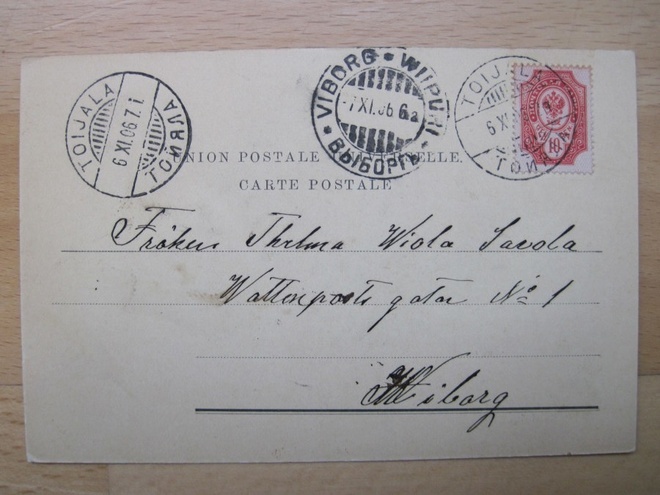 TOIJALA
6 XI.06 7.i
ТОЙЯЛА
VIBORG * WIIPURI
-7 XI.06 6a
* ВЫБОРГЪ -
TOIJALA
6 XI
10
UNION POSTALE UNIVERSELLE.
CARTE POSTALE
Fröken Thelma Wiola Savola
Wattenposts gatan No 1
Wiborg